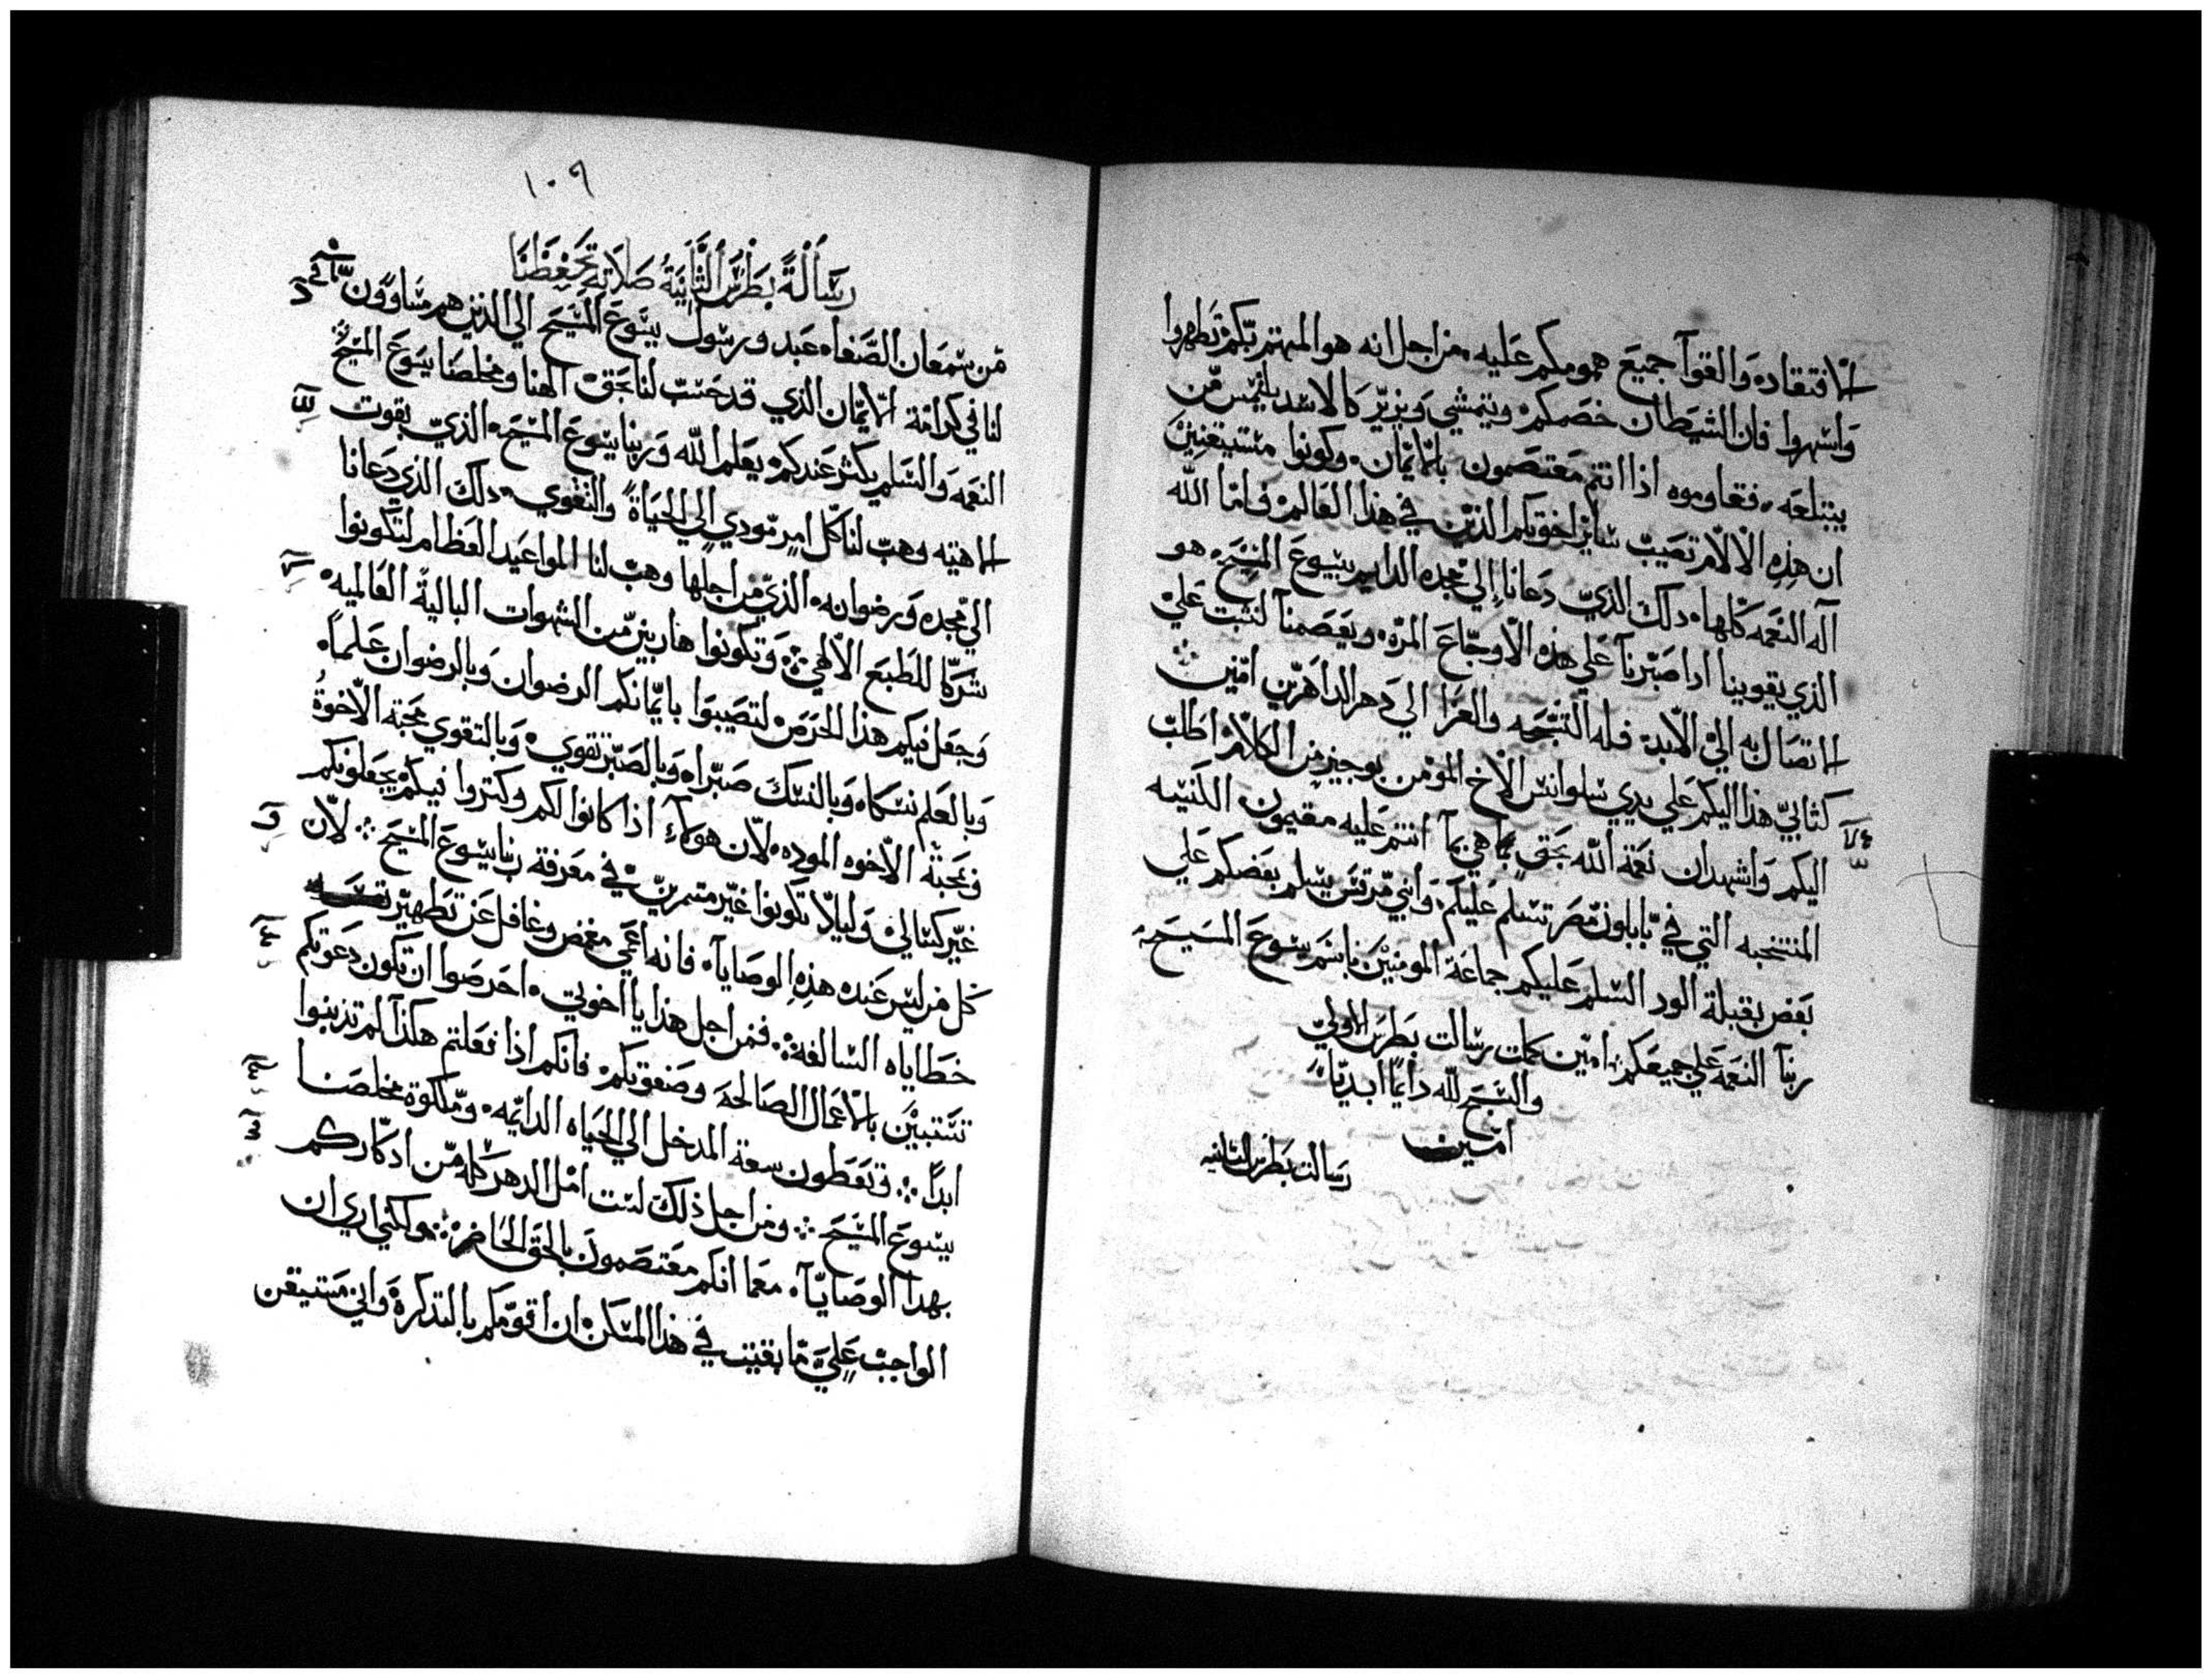 الافتقاده والقوا جميع همومكم عليه من اجل انه هو المهتم بكم تطهروا
واسهروا فان الشيطان خصمكم ويتمشي ويزير كالاسد يلتمس من
يبتلعه فقاوموه اذا انتم معتصمون بالايمان وكونوا مستيقنين
ان هذه الالام تصيب ساير اخوتكم الذين في هذا العالم فاما الله
اله النعمه كلها دلك الذي دعانا الي مجده الدايم بيسوع المسيح هو
الذي يقوينا ادا صبرنا علي هذه الاوجاع المره ويعصمنا لنثبت علي
الاتصال به الي الابد فله التسبحه والعزا الي دهر الداهرين امين
كتابي هذا اليكم علي يدي سلوانس الاخ المومن بوجيز من الكلام اطلب
اليكم واشهد ان نعمة الله بحق ما هي بما انتم عليه مقيمون الكنيسه
المنتخبه التي في باباون مصر تسلم عليكم وابني مرقس يسلم بعضكم علي
بعض بقبلة الود السلم عليكم جماعة المومنين باسم يسوع المسيح
ربنا النعمه علي جميعكم امين كملت رسالت بطرس الاولي
والسبح لله دايما ابديا
امين
رسالت بطرس الثانيه
١٠٩
رسالة بطرس الثانية صلاته تحفظنا
من سمعان الصفا عبد ورسول يسوع المسيح الي الذين هم مساوون
لنا في كرامة الايمان الذي قد حسب لنا بحق الهنا ومخلصنا يسوع المسيح
النعمه والسلم يكثر عندكم بعلم الله وربنا يسوع المسيح الذي بقوت
لاهيته وهب لنا كل امر تودي الي الحياة والتقوي دلك الذي دعانا
الي مجده ورضوانه الذي من اجلها وهب لنا المواعيد العظام لتكونوا
شركا للطبع الالهي وتكونوا هاربين من الشهوات البالية العالميه
وجعل فيكم هذا الحرص لتصيبوا بايمانكم الرضوان وبالرضوان علما
وبالعلم نسكا وبالنسك صبرا وبالصبر تقوي وبالتقوي محبة الاخوة
وبمحبة الاخوه الموده لان هولاء اذا كانوا لكم وكتروا فيكم يجعلونكم
غير كسالي وليلا تكونوا غير متمرين في معرفة ربنا يسوع المسيح لان
كل من ليس عنده هذه الوصايا فانه اعمي مغمض وغافل عن تطهير
خطاياه السالفه فمن اجل هذا يا اخوتي احرصوا ان تكون دعوتكم
تستبين بالاعمال الصالحة وصفوتكم فانكم اذا فعلتم هكذا لم تذنبوا
ابدا وتعطون سعة المدخل الي الحياه الدايمه وملكوة مخلصنا
يسوع المسيح ومن اجل ذلك لست امل الدهر كله من ادكاركم
بهدا الوصايا معما انكم معتصمون بالحق الحاضر ولكني اري ان
الواجب علي ما بقيت في هذا المسكن ان اقومكم بالتدكرة واني مستيقن